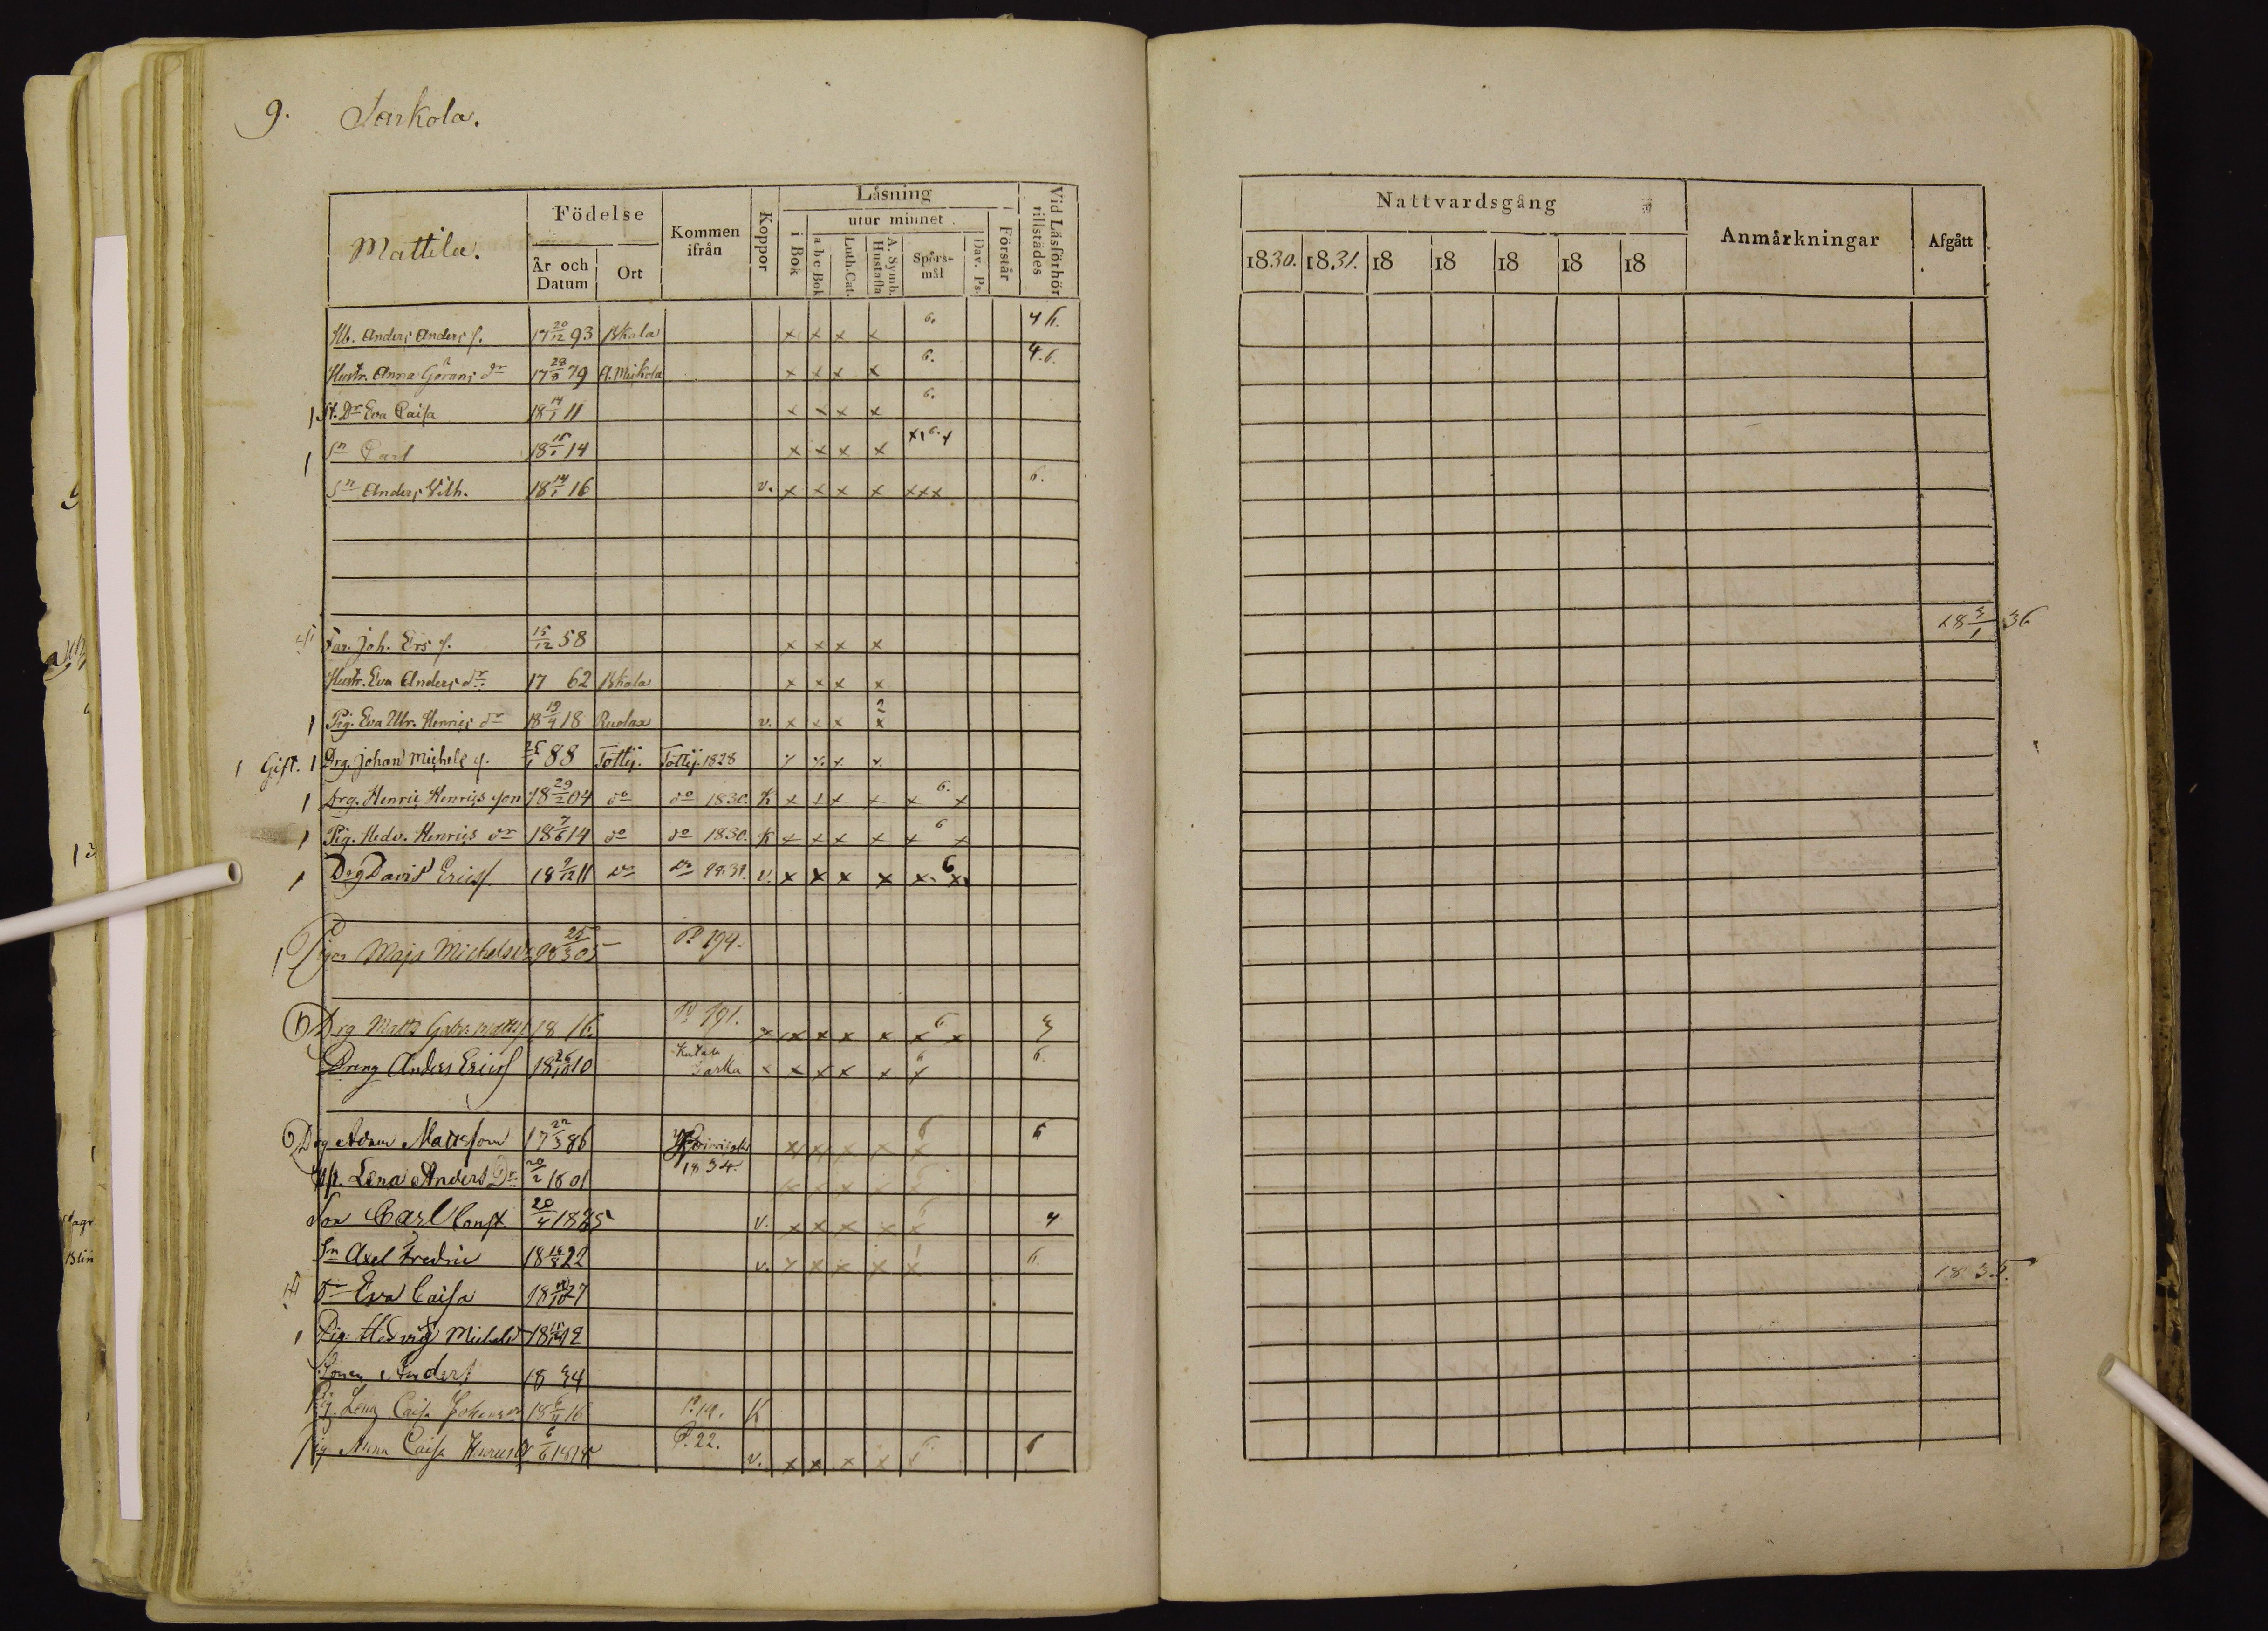 9. Sarkola.
Mattila.
Födelse
År och Datum
Ort
Kommen ifrån
Koppor
Läsning
i Bok
utur minnet
a b c Bok
Luth. Cat.
A. Symb. Hustafla
Spörs-mål
Dav. Ps.
Förstår
Vid Läsförhör tillstädes
Nattvardsgång
1830. 1831. 18 18 18 18 18
Anmärkningar
Afgått
Hb. Anders Anders s. 17 20/12 93 Bkala x x x x 6.
Hustr. Anna Görans dr 17 28/8 79 x x x x 6. 4.6.
1 St. Dr Eva Caisa 18 14/1 11 x x x x 6.
1 Sn Carl 18 14 x x x x
Sn Anders Vilh. 18 14/1 16 v. x x x x xxx 6.
Far. Joh. Ers s. 15/12 58 x x x x 18 3/1 36
Hustr. Eva Anders dr. 17 62 Bkala x x x x
1 Pig. Eva Ulr. Henrics dr 18 19/4 18 Rudax v. x x x x 2
1 Gift. 1 Drg. Johan Michels s. 88 Tottij. Tottij. 1828 x x x x
1 Drg. Henric Henrics son 18 29/2 04 do do 1830. K x x x x x 6. x
1 Pig. Hedv. Henrics dr 18 7/6 14 do do 1830. K x x x x x 6 x
1 Drg David Erics s. 18 11 do do 1831. v. x x x x x. 6 x.
1 Pigan Maja Michelsdr 18 25/3 05 P 194.
Drg Matts 18 16. P 191. x x x x x x 6 x
Dreng Anders Erics s 18 26/10 10 x x x x x x 6 6.
Drg Adam Matsson 17 22/3 86 1834. x x x x x 6 6
Hst. Lena Anders Dr 20/2 1801 x x x x x
Son Carl Const. 20/4 1825 v. x x x x x 6 4
Sn Axel Fredric 18 22 v. x x x x x 6.
Dr Eva Caisa 18 27 18 35.
1 Pig. Hedvig Michelsdr 18 12
Sonen Anders 18 34
Pig. Lena Caisa Johansdr 18 16 K
Pig Anna Caisa 6/6 1814 P. 22. v. x x x x x 6. 6